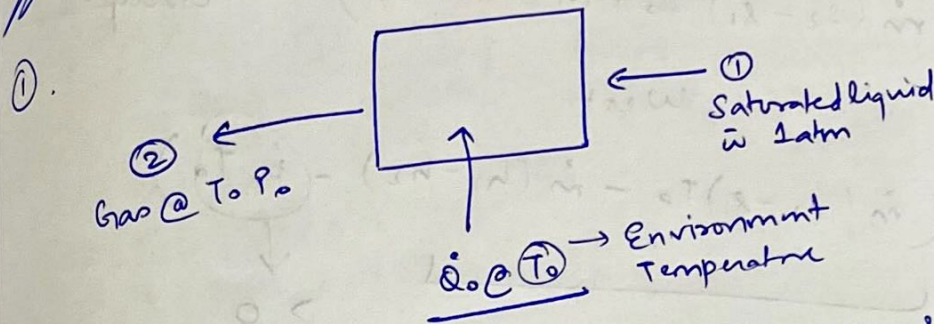 ①.
①
Saturated liquid
w̄ 1atm
②
Gas @ T₀ P₀
Q̇₀ @ T₀ → Environment
Temperature